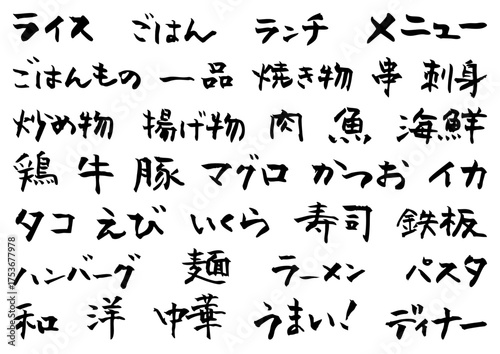 ライス ごはん ランチ メニュー
ごはんもの 一品 焼き物 串 刺身
炒め物 揚げ物 肉 魚 海鮮
鶏 牛 豚 マグロ かつお イカ
タコ えび いくら 寿司 鉄板
ハンバーグ 麺 ラーメン パスタ
和 洋 中華 うまい! ディナー
Adobe Stock | #1753677978